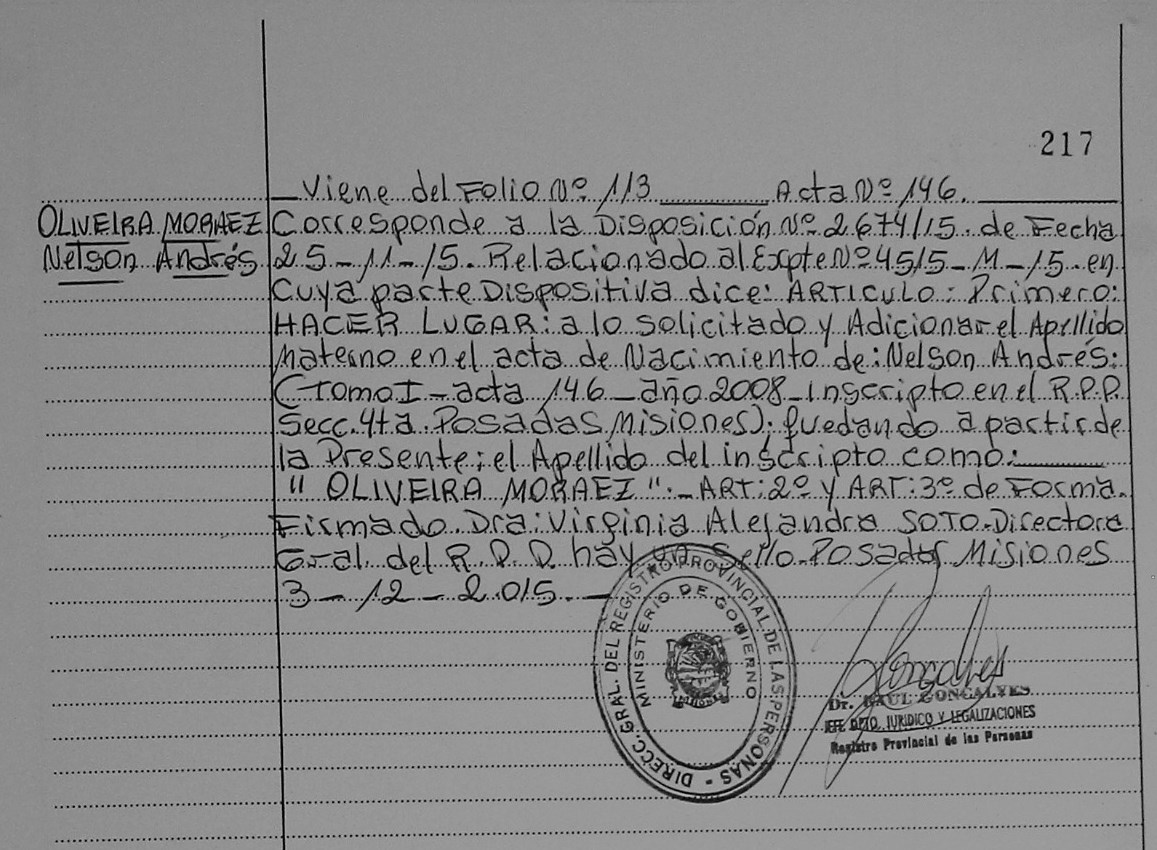 217
Viene del Folio Nº 113 Acta Nº 146.
OLIVEIRA MORAEZ
Nelson Andrés
Corresponde a la Disposición Nº 2674/15. de Fecha
25-11-15. Relacionado al Expte Nº 4515-M-15. en
Cuya parte Dispositiva dice: ARTICULO: Primero:
HACER LUGAR: a lo solicitado y Adicionar el Apellido
Materno en el acta de Nacimiento de: Nelson Andrés:
(Tomo I - acta 146 - año 2008 - Inscripto en el R.P.P.
Secc. 4ta. Posadas Misiones); quedando a partir de
la Presente; el Apellido del inscripto como:
" OLIVEIRA MORAEZ ".- ART: 2º y ART: 3º de Forma.
Firmado. Dra: Virginia Alejandra SOTO. Directora
Gral. del R.P.P. hay un Sello. Posadas Misiones
3-12-2.015.-
DIRECC. GRAL. DEL REGISTRO PROVINCIAL DE LAS PERSONAS -
MINISTERIO DE GOBIERNO
Gonçalves
Dr. RAUL GONCALVES
JEFE DPTO. JURIDICO Y LEGALIZACIONES
Registro Provincial de las Personas